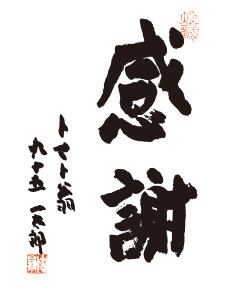 感謝
トマト翁
九十五 一太郎